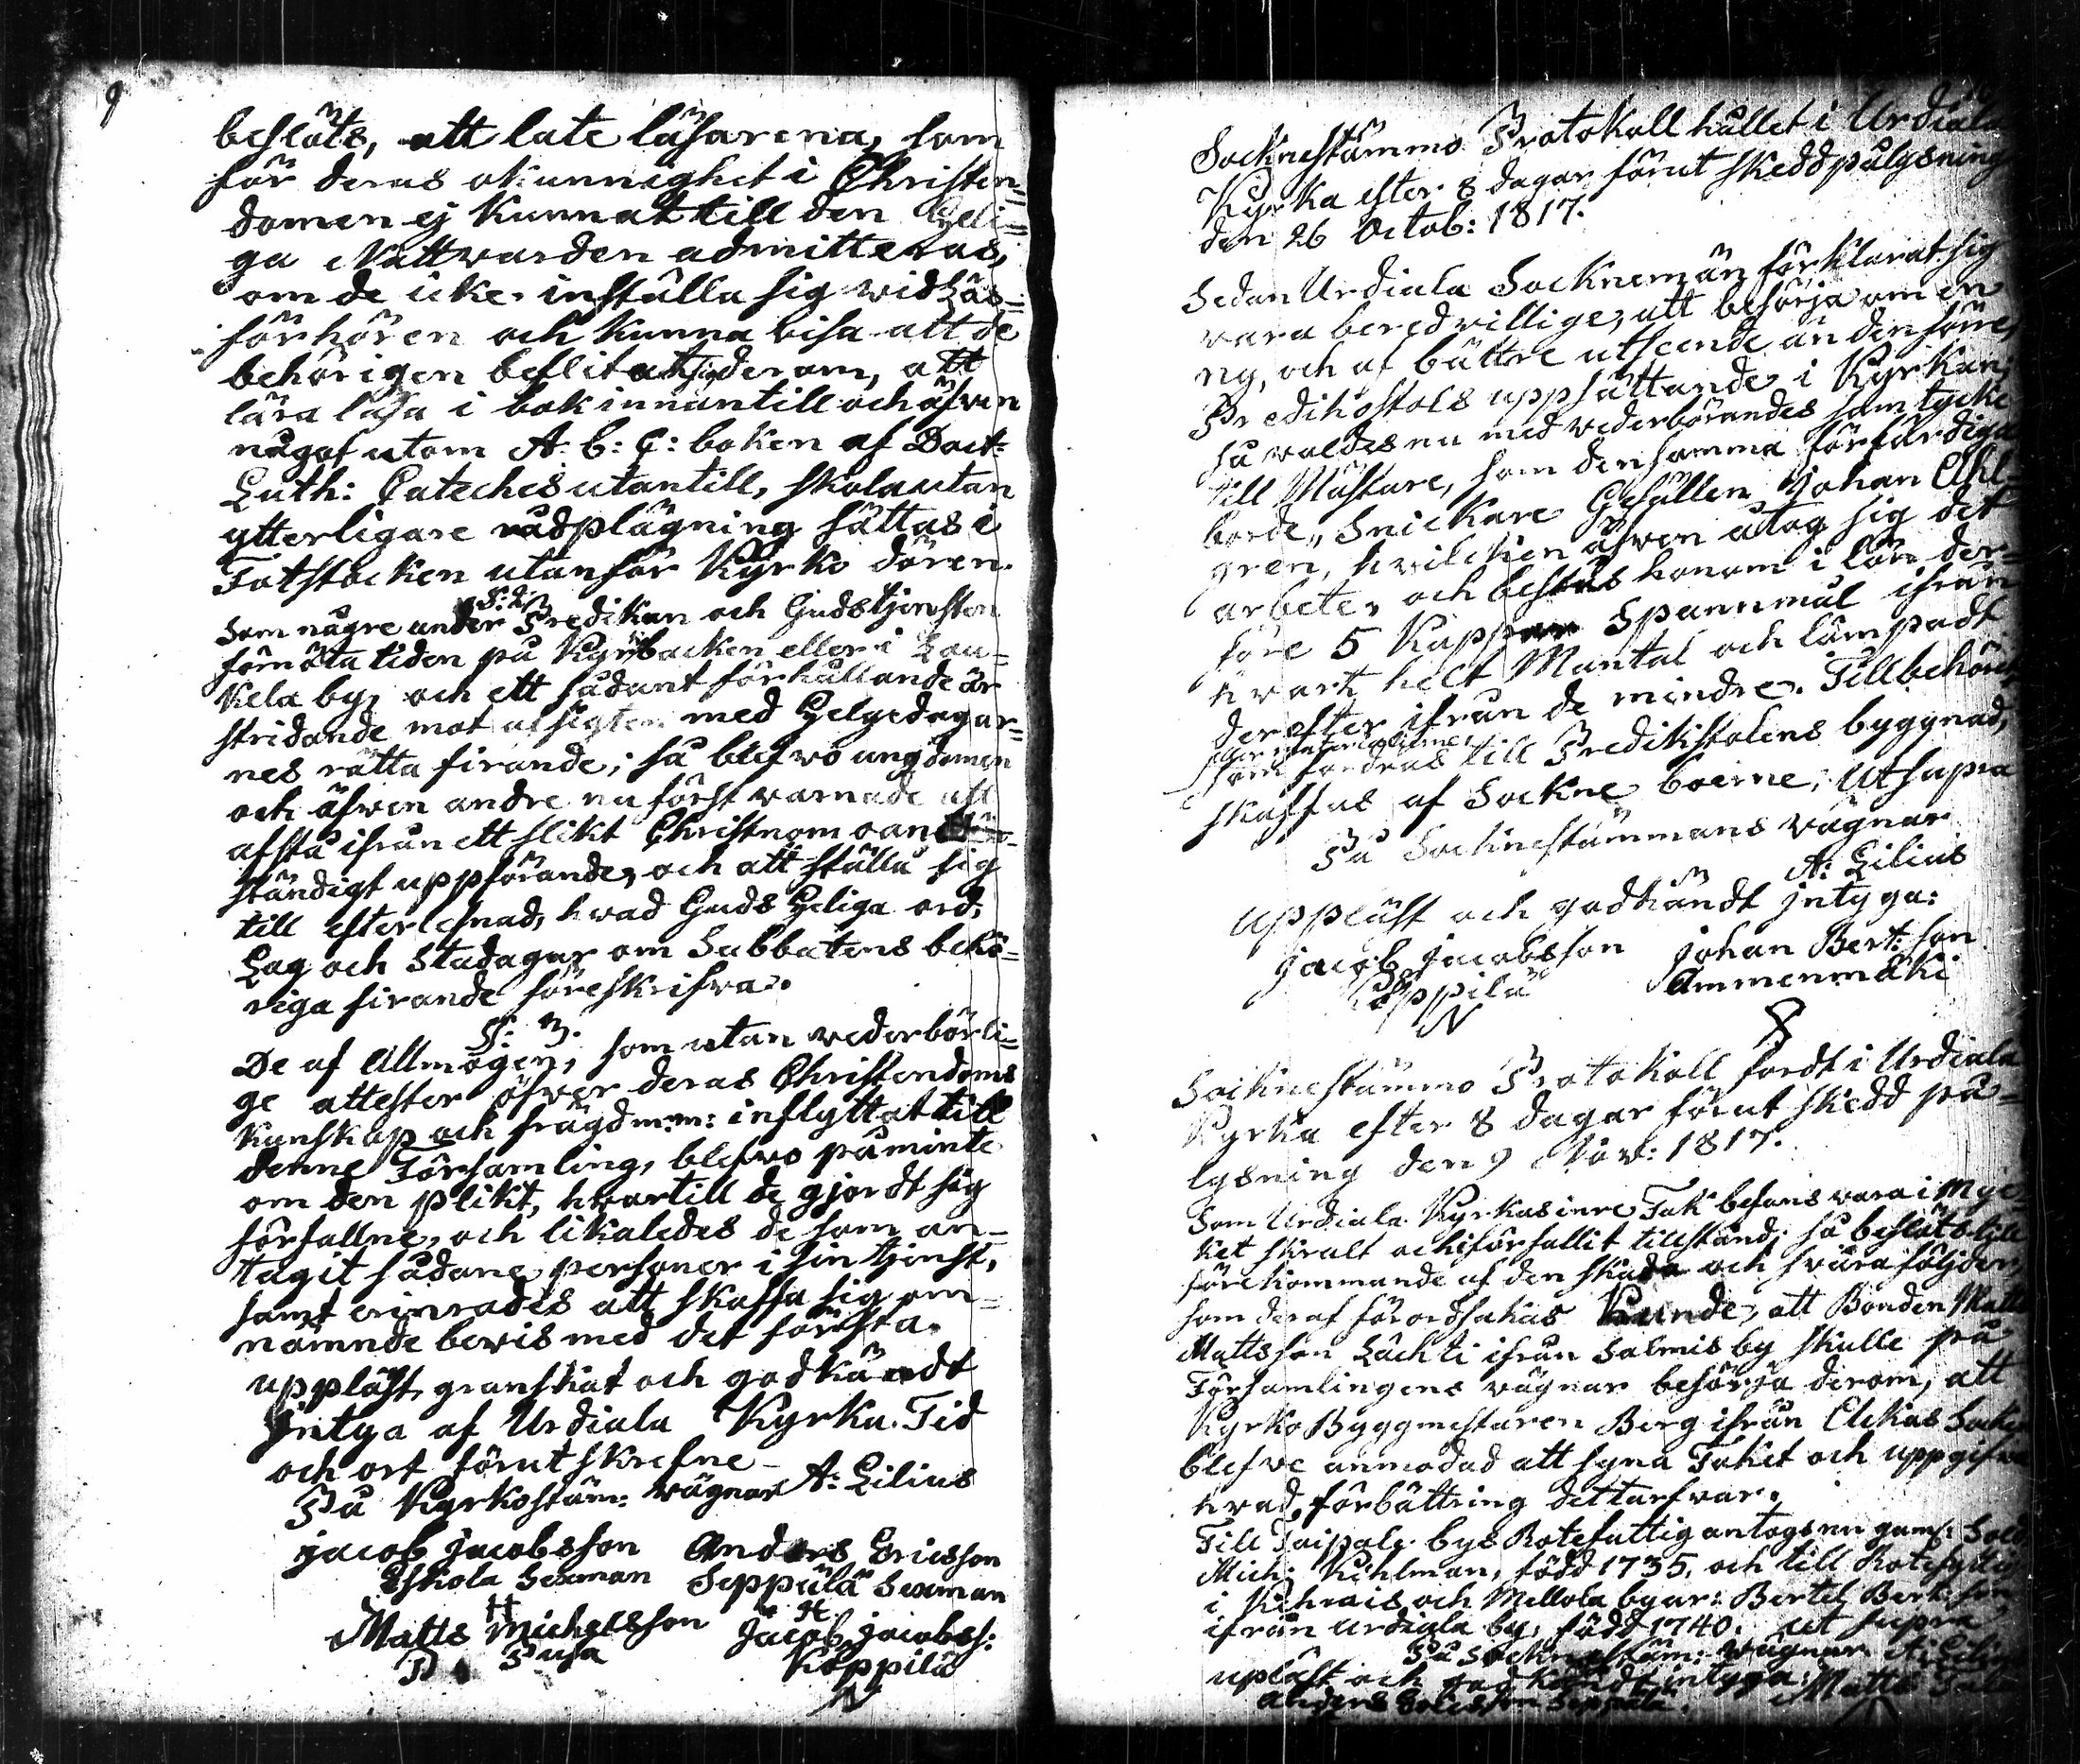 9
beslöts, att late läsarena, som
för deras okunnighet i Christen=
domen ej kunnat till den Heli=
ga Nattvarden admitteras,
om de icke inställa sig wid Läs=
förhören och kunna visa att de
behörigen beflitat sig derom, att
lära läsa i bok innantill och äfven
något utom A. b: C: boken af Doct:
Luth: Cateches utantill, skola utan
ytterligare rådplägning sättas i
Fotstocken utanför Kyrko dören.
§: 2.
Som någre under Predikan och Gudstjensten
förnöta tiden på Kyrkbacken eller i Lau=
kela by, och ett sådant förhållande är
stridande mot afsigten med Helgedagar=
nes rätta firande; så blefvo ungdomen
och äfwen andre nu först warnade att
afstå ifrån ett slikt Christnom oan=
ständigt uppförande, och att ställa sig
till efterlefnad, hwad Guds Heliga ord,
Lag och Stadagar om Sabbatens behö=
riga firande föreskrifva.
§: 3.
De af Allmogen, som utan wederbörli=
ge attester öfver deras Christendoms
kunskap och frägd m:m: inflyttat till
denne Församling, blefvo påminte
om den plikt, hwartill de gjordt sig
förfallne, och likaledes de som an=
tagit sådane personer i sin tjenst,
samt erinrades att skaffa sig om=
nämnde bevis med det första.
uppläst, granskat och godkändt
Jntyga af Urdiala Kyrka. Tid
och ort förut skrefne
På Kyrkostäm: wägnar A: Lilius
Jacob Jacobsson Anders Ericsson
Eskola Sexman Seppälä Sexman
Matts Michelsson Jacob Jacobss:
Pusa Köppilä
Socknestämmo Protokoll hållet i Urdiala
Kyrka efter 8 dagar förut skedd pålysning
den 26 Octob: 1817.
Sedan Urdiala Socknemän förklarat sig
vara beredvillige, att besörja om en
ny, och af bättre utseende än den förre,
Predikostols uppsättande i Kyrkan;
så valdes nu med wederbörandes samtycke
till Mästare, som densamma förfärdiga
borde, Snickare Gesällen Johan Ahl=
gren, hvilcken äfven åtog sig det
arbete, och bestås honom i lön der=
före 5 Kappar Spannmål ifrån
hvart helt Mantal och lämpadt
derefter ifrån de mindre. Tillbehör,
som fordras till Predikstolens byggnad,
skaffas af Sockne boerne; Ut supra
På Socknestämmans vägnar
A: Lilius
uppläst och godkändt jntyga:
Jacob Jacobsson Johan Bert:son
Köppilä Ammenmäki
Socknestämmo Protokoll fördt i Urdiala
Kyrka efter 8 dagar förut skedd på=
lysning den 9 Nov: 1817.
Som Urdiala Kyrkas inre Tak befans vara i myc=
ket skralt och förfallit tillstånd; så beslöts till
förekommande af den skada och svåra följder,
som deraf förordsakas kunde, att Bonden Matts
Mattsson Lächti ifrån Salmis by skulle på
Församlingens vägnar besörja derom, att
Kyrko Byggmestaren Berg ifrån Ackas Socken
blefve anmodad att syna Taket och uppgifva
hvad förbättring det tarfvar.
Till Taipale bys Rotefattig antogs nu gaml: Sold:
Mich: Kihlman, född 1735. och till Rotefattig
i Kehrais och Mellola byar: Bertel Bert:son
ifrån Urdiala by, född 1740. ut supra
På Socknestäm: wägnar A: Lilius
upläst och godkändt intyga:
Anders Ericsson Seppälä. Matts